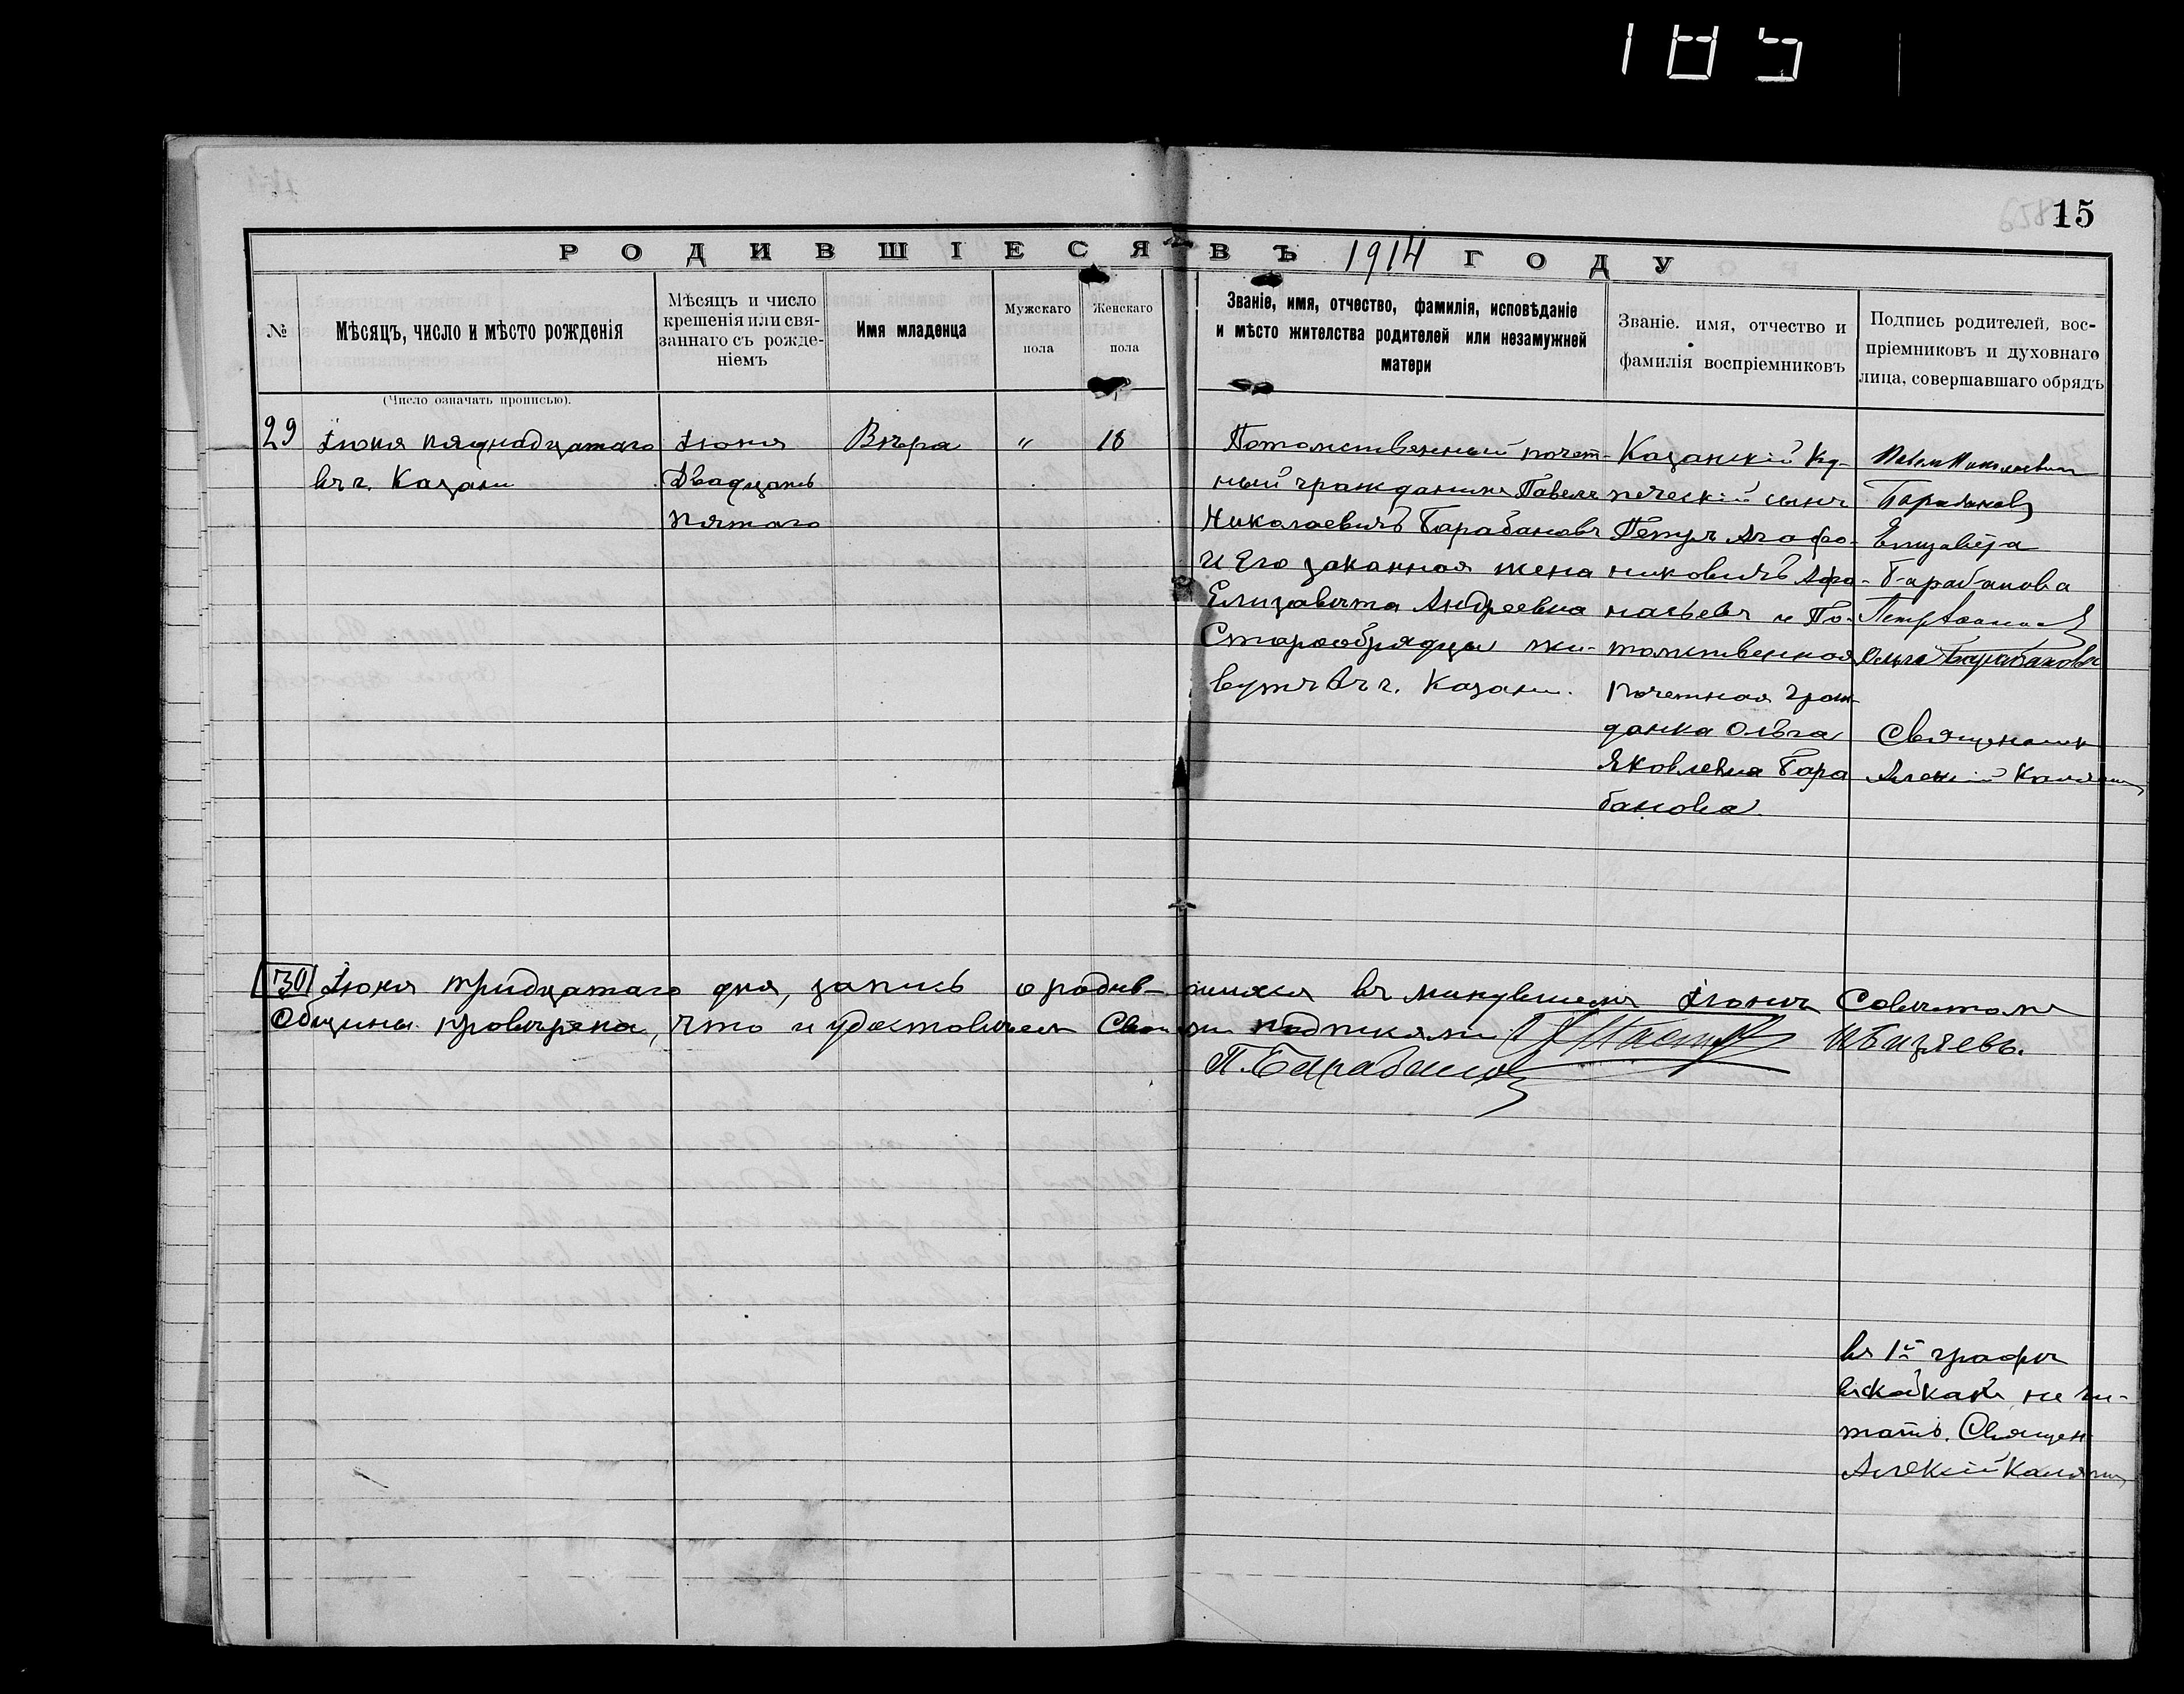 185
15
РОДИВШІЕСЯ ВЪ 1914 ГОДУ
№
Мѣсяцъ, число и мѣсто рожденія
Мѣсяцъ и число
крещенія или свя-
заннаго съ рожде-
ніемъ
Имя младенца
Мужскаго
пола
Женскаго
пола
Званіе, имя, отчество, фамилія, исповѣданіе
и мѣсто жителства родителей или незамужней
матери
Званіе. имя, отчество и
фамилія воспріемниковъ
Подпись родителей, вос-
пріемниковъ и духовнаго
лица, совершавшаго обрядъ
(Число означать прописью).
29
Іюня пятнадцатаго
въ г. Казани
Іюня
Двадцать
пятаго
Вѣра
"
18
Потомственный почет-
ный гражданинъ Павелъ
Николаевичъ Барабановъ
и Его законная жена
Елизавета Андреевна
Старообрядцы жи-
вутъ въ г. Казани.
Казанскій Ку-
печескій сынъ
Петръ Агафо-
никовичъ Афа-
насьевъ и По-
томственная
почетная граж-
данка Ольга
Яковлевна Бара
банова.
Павелъ Николаевич
Барабановъ
Елизавета
Барабанова
Ольга Барабанова
Священник
Алексій
30 Іюня тридцатаго дня, запись о родив-шихся въ минувшемъ Іюнѣ Советомъ
Общины проверена, что и удостоверяем Своими подписями
П. Барабановъ
въ 1й графѣ
въ скобках не чи-
тать. Священ
Алексій